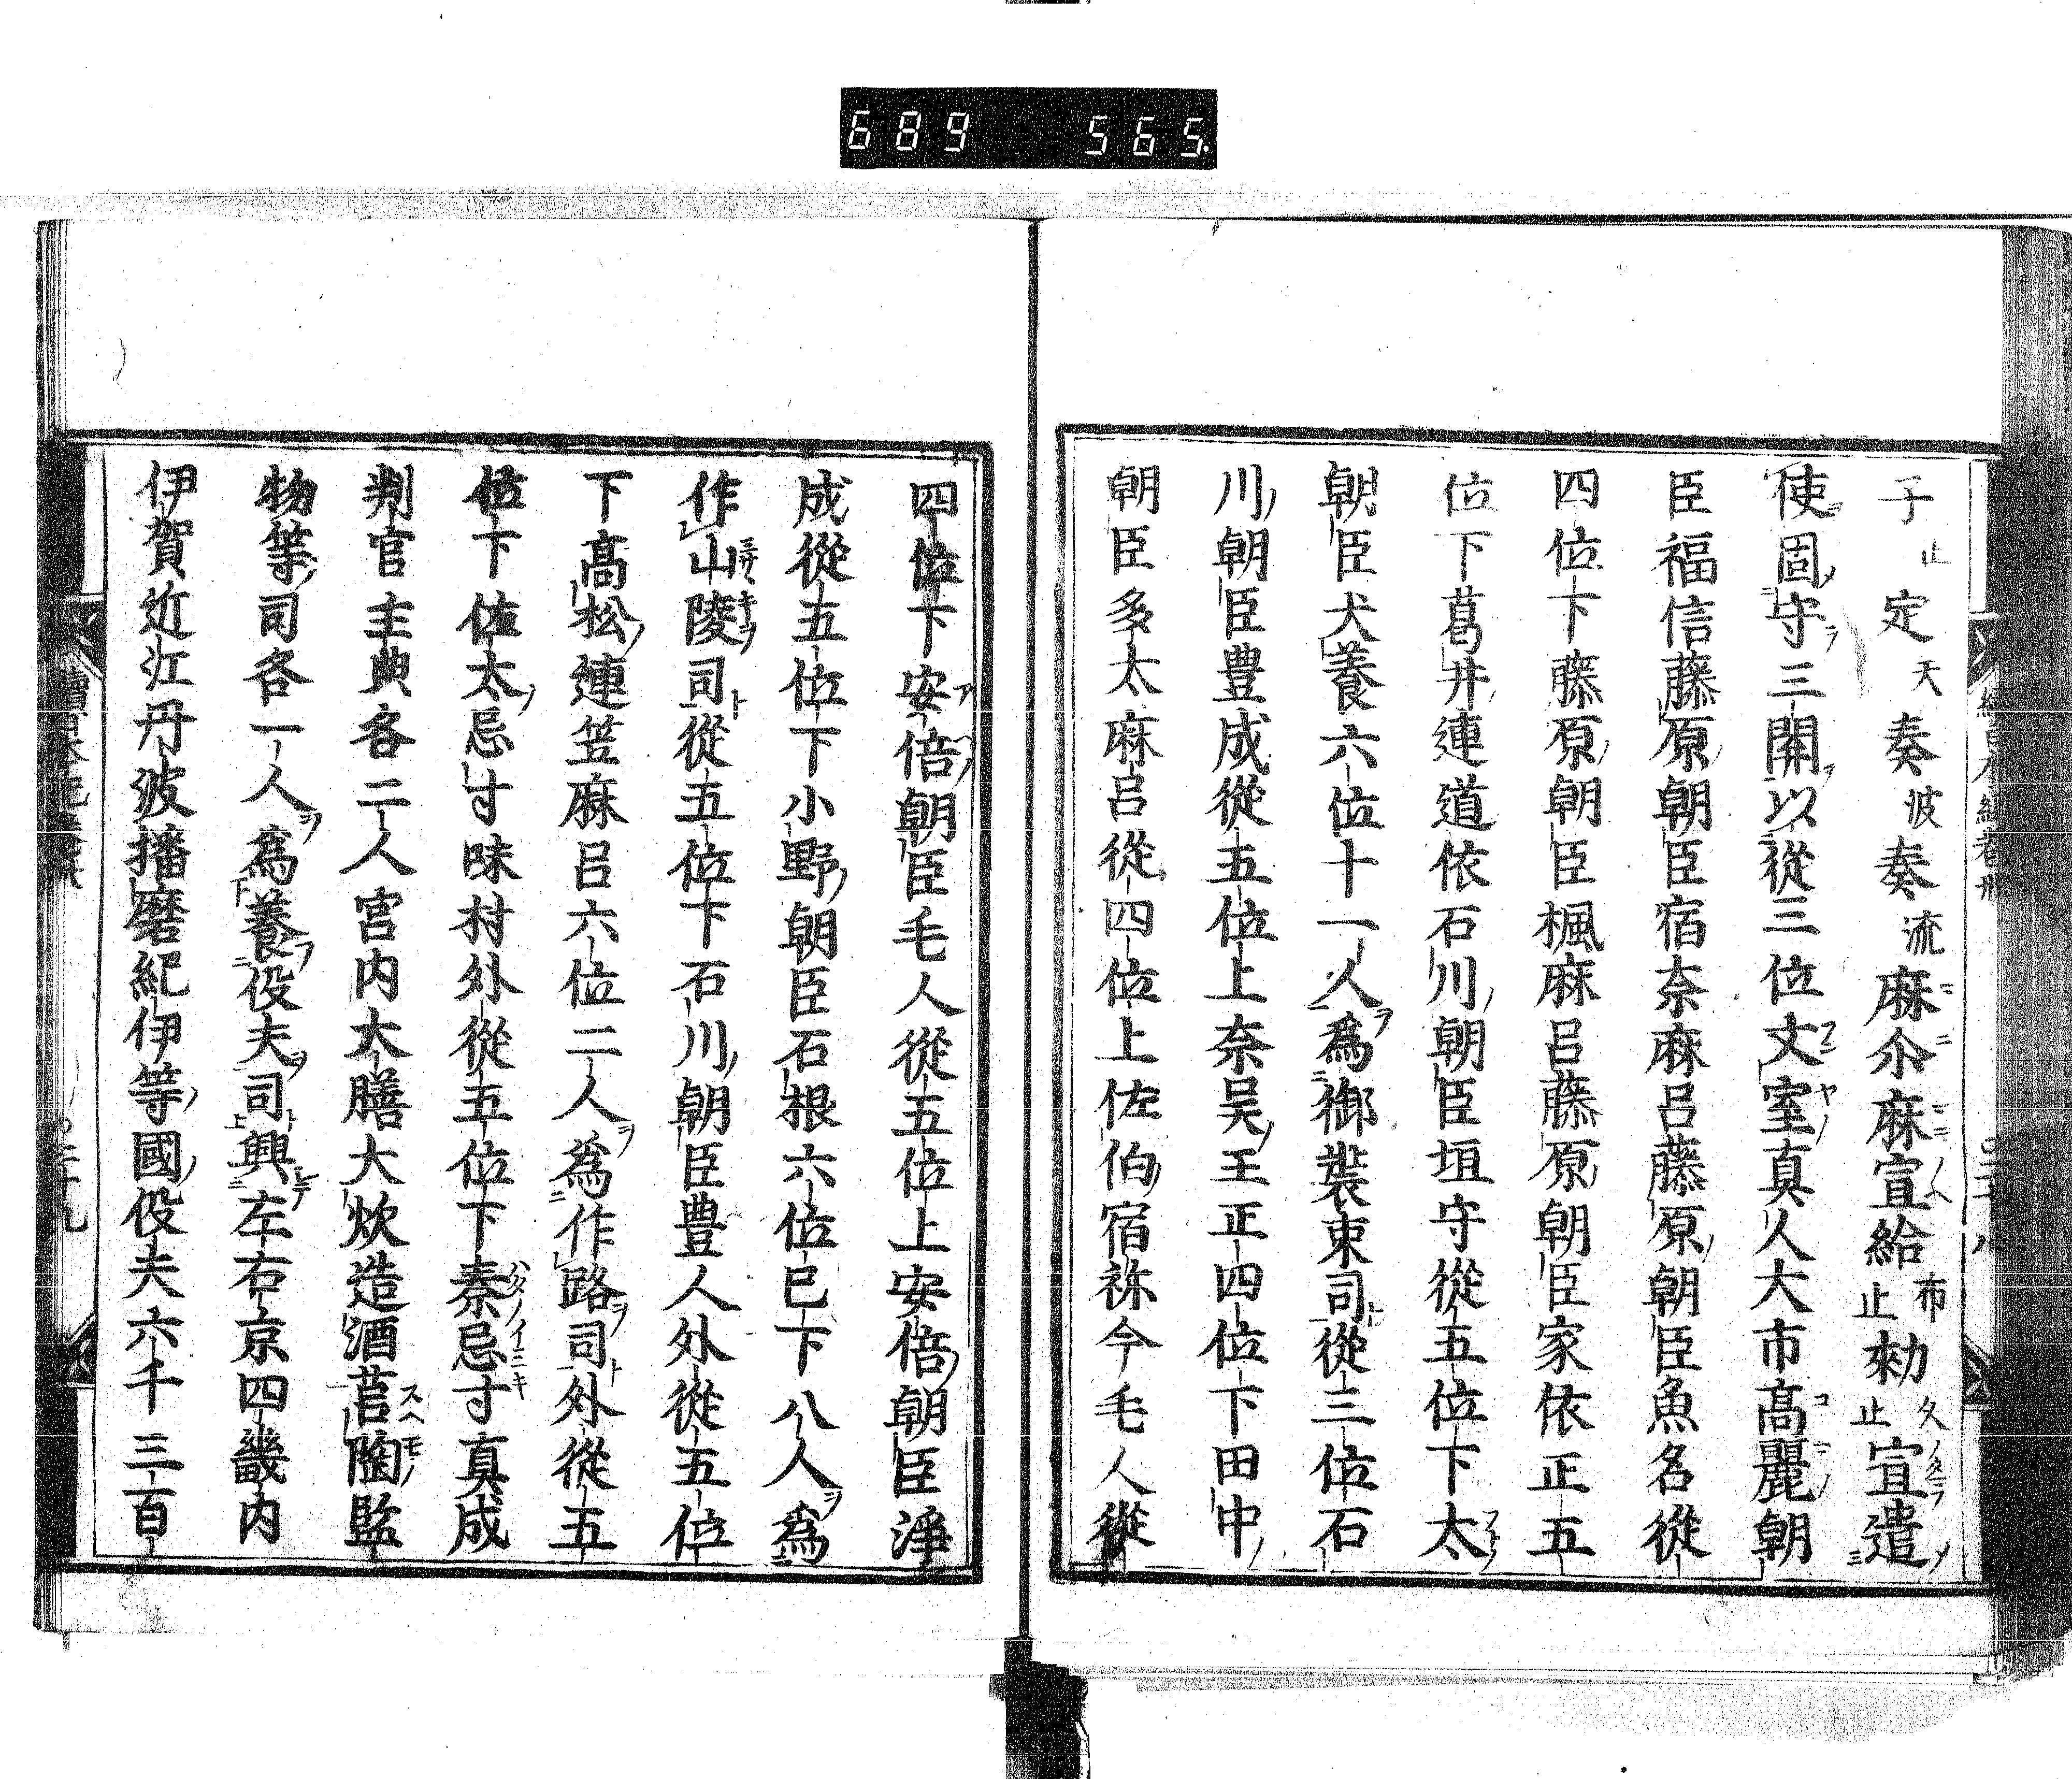 689 565
子止定天奏波奏流麻尒麻宣給布止勑久止宣遣
使固守三関以從三位文室真人大市高麗朝
臣福信藤原朝臣宿奈麻呂藤原朝臣魚名從
四位下藤原朝臣楓麻呂藤原朝臣家依正五
位下葛井連道依石川朝臣垣守從五位下太
朝臣犬養六位十一人爲御裝束司從三位石
川朝臣豊成從五位上奈吴王正四位下田中
朝臣多太麻呂從四位上佐伯宿祢今毛人從
四位下安倍朝臣毛人從五位上安倍朝臣淨
成從五位下小野朝臣石根六位已下八人爲
作山陵司從五位下石川朝臣豊人外從五位
下髙松連笠麻呂六位二人爲作路司外從五
位下佐太忌寸味村外從五位下秦忌寸真成
判官主典各二人宮内大膳大炊造酒莒陶監
物等司各一人爲養役夫司興左右京四畿内
伊賀近江丹波播磨紀伊等國役夫六千三百